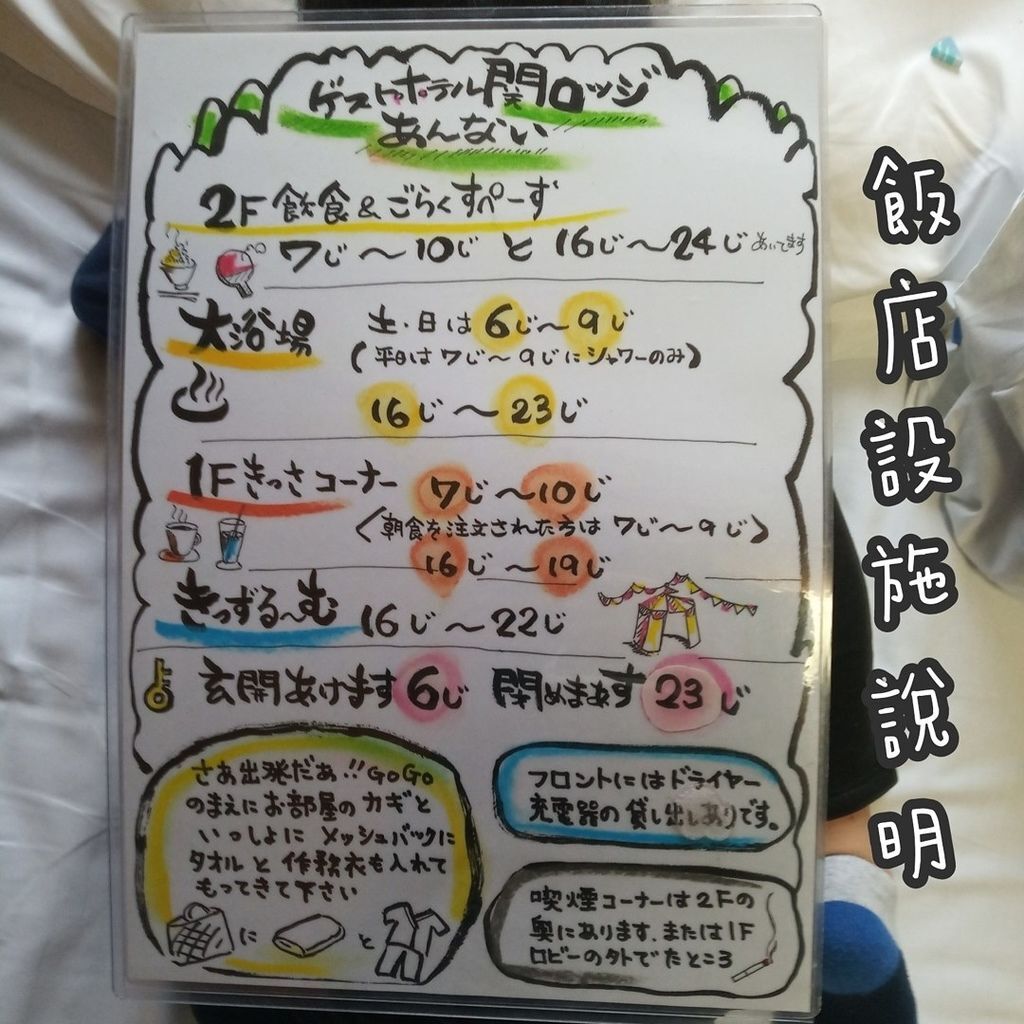 ゲストホテル関ロッジ
あんない
2F 飲食&ごらくすぺーず
7じ〜10じ と 16じ〜24じ あいてます
大浴場
土・日は 6じ〜9じ
(平日は7じ〜9じにシャワーのみ)
16じ〜23じ
1Fきっさコーナー 7じ〜10じ
(朝食を注文された方は 7じ〜9じ)
16じ〜19じ
きっずる〜む 16じ〜22じ
玄関あけます 6じ 閉めまぁす 23じ
さぁ出発だぁ!!GoGo
のまえにお部屋のカギと
いっしょに メッシュバックに
タオルと作務衣も入れて
もってきて下さい
に と
フロントにはドライヤー
充電器の貸し出しありです。
喫煙コーナーは2Fの
奥にあります、または1F
ロビーの外でたところ
飯店設施説明